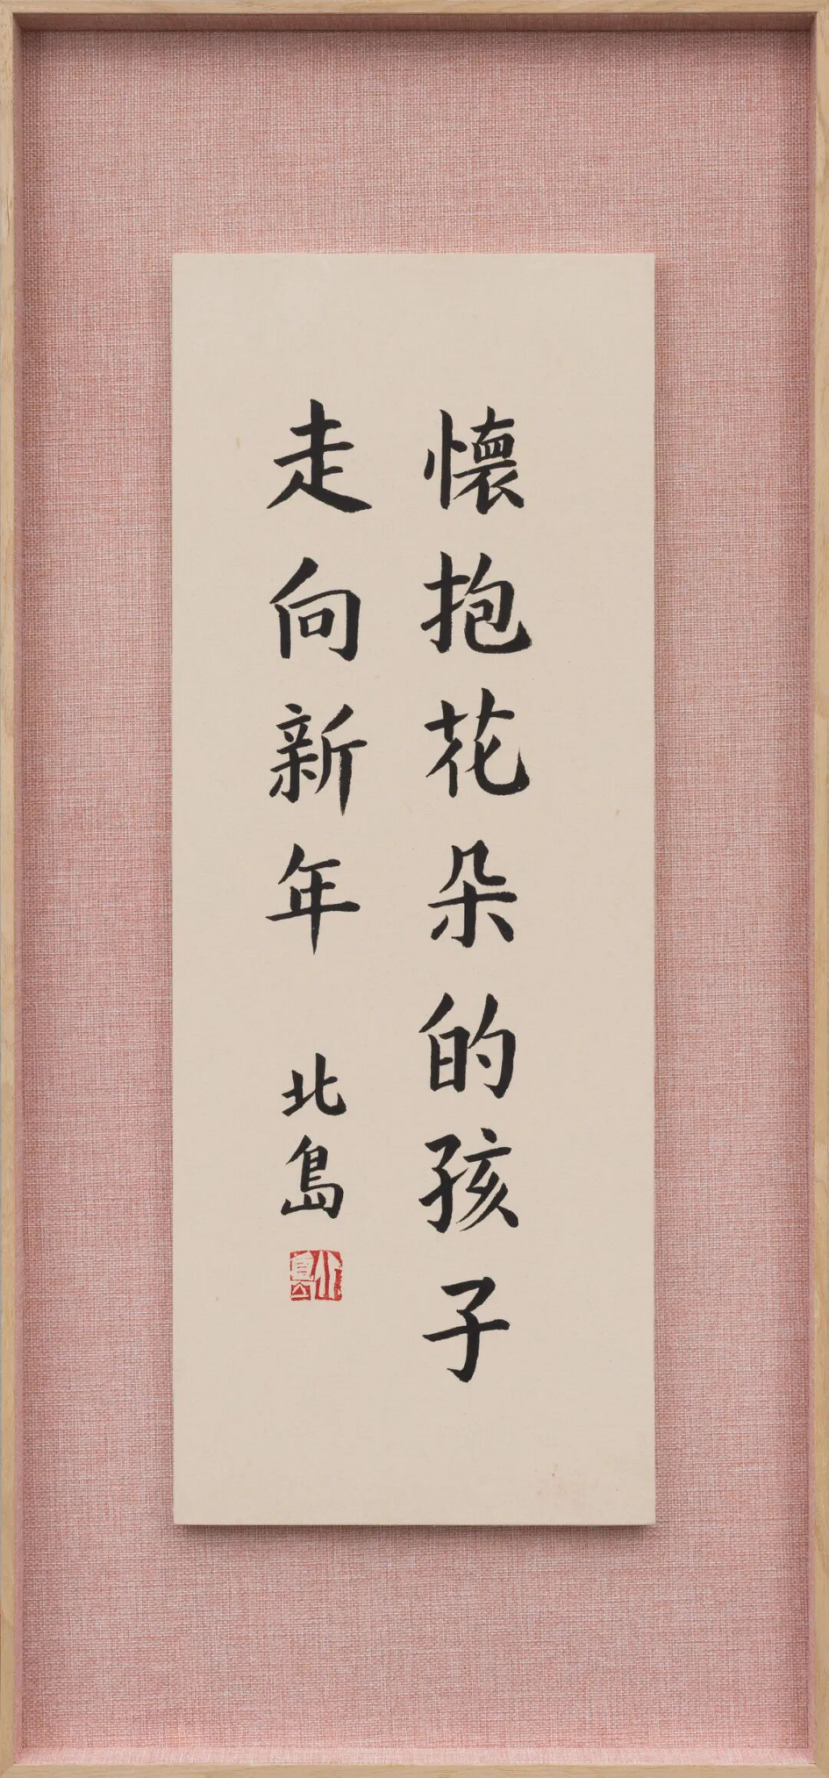 懷抱花朵的孩子
走向新年
北島
北島